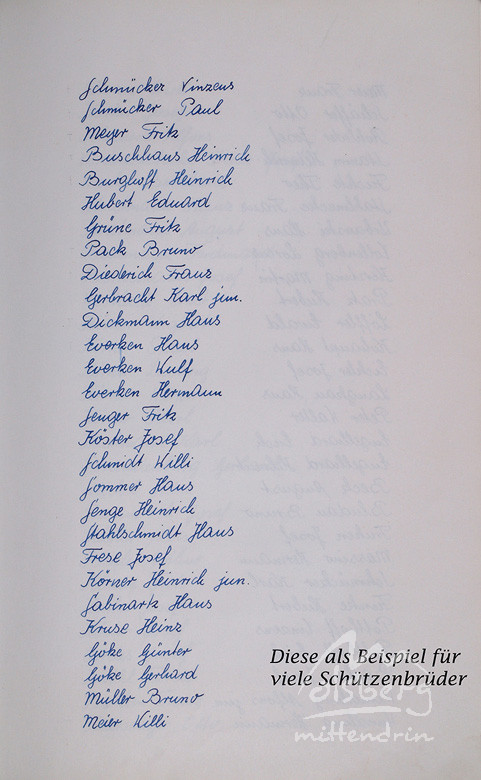 Schmücker Vinzens
Schmücker Paul
Meyer Fritz
Buschhaus Heinrich
Burghoff Heinrich
Hubert Eduard
Grüne Fritz
Pack Bruno
Diederich Franz
Gerbracht Karl jun.
Dickmann Hans
Everken Hans
Everken Wulf
Everken Hermann
Senger Fritz
Köster Josef
Schmidt Willi
Sommer Hans
Senge Heinrich
Stahlschmidt Hans
Frese Josef
Körner Heinrich jun.
Sabinarz Hans
Kruse Heinz
Göke Günter
Göke Gerhard
Müller Bruno
Meier Willi
Diese als Beispiel für
viele Schützenbrüder
mittendrin